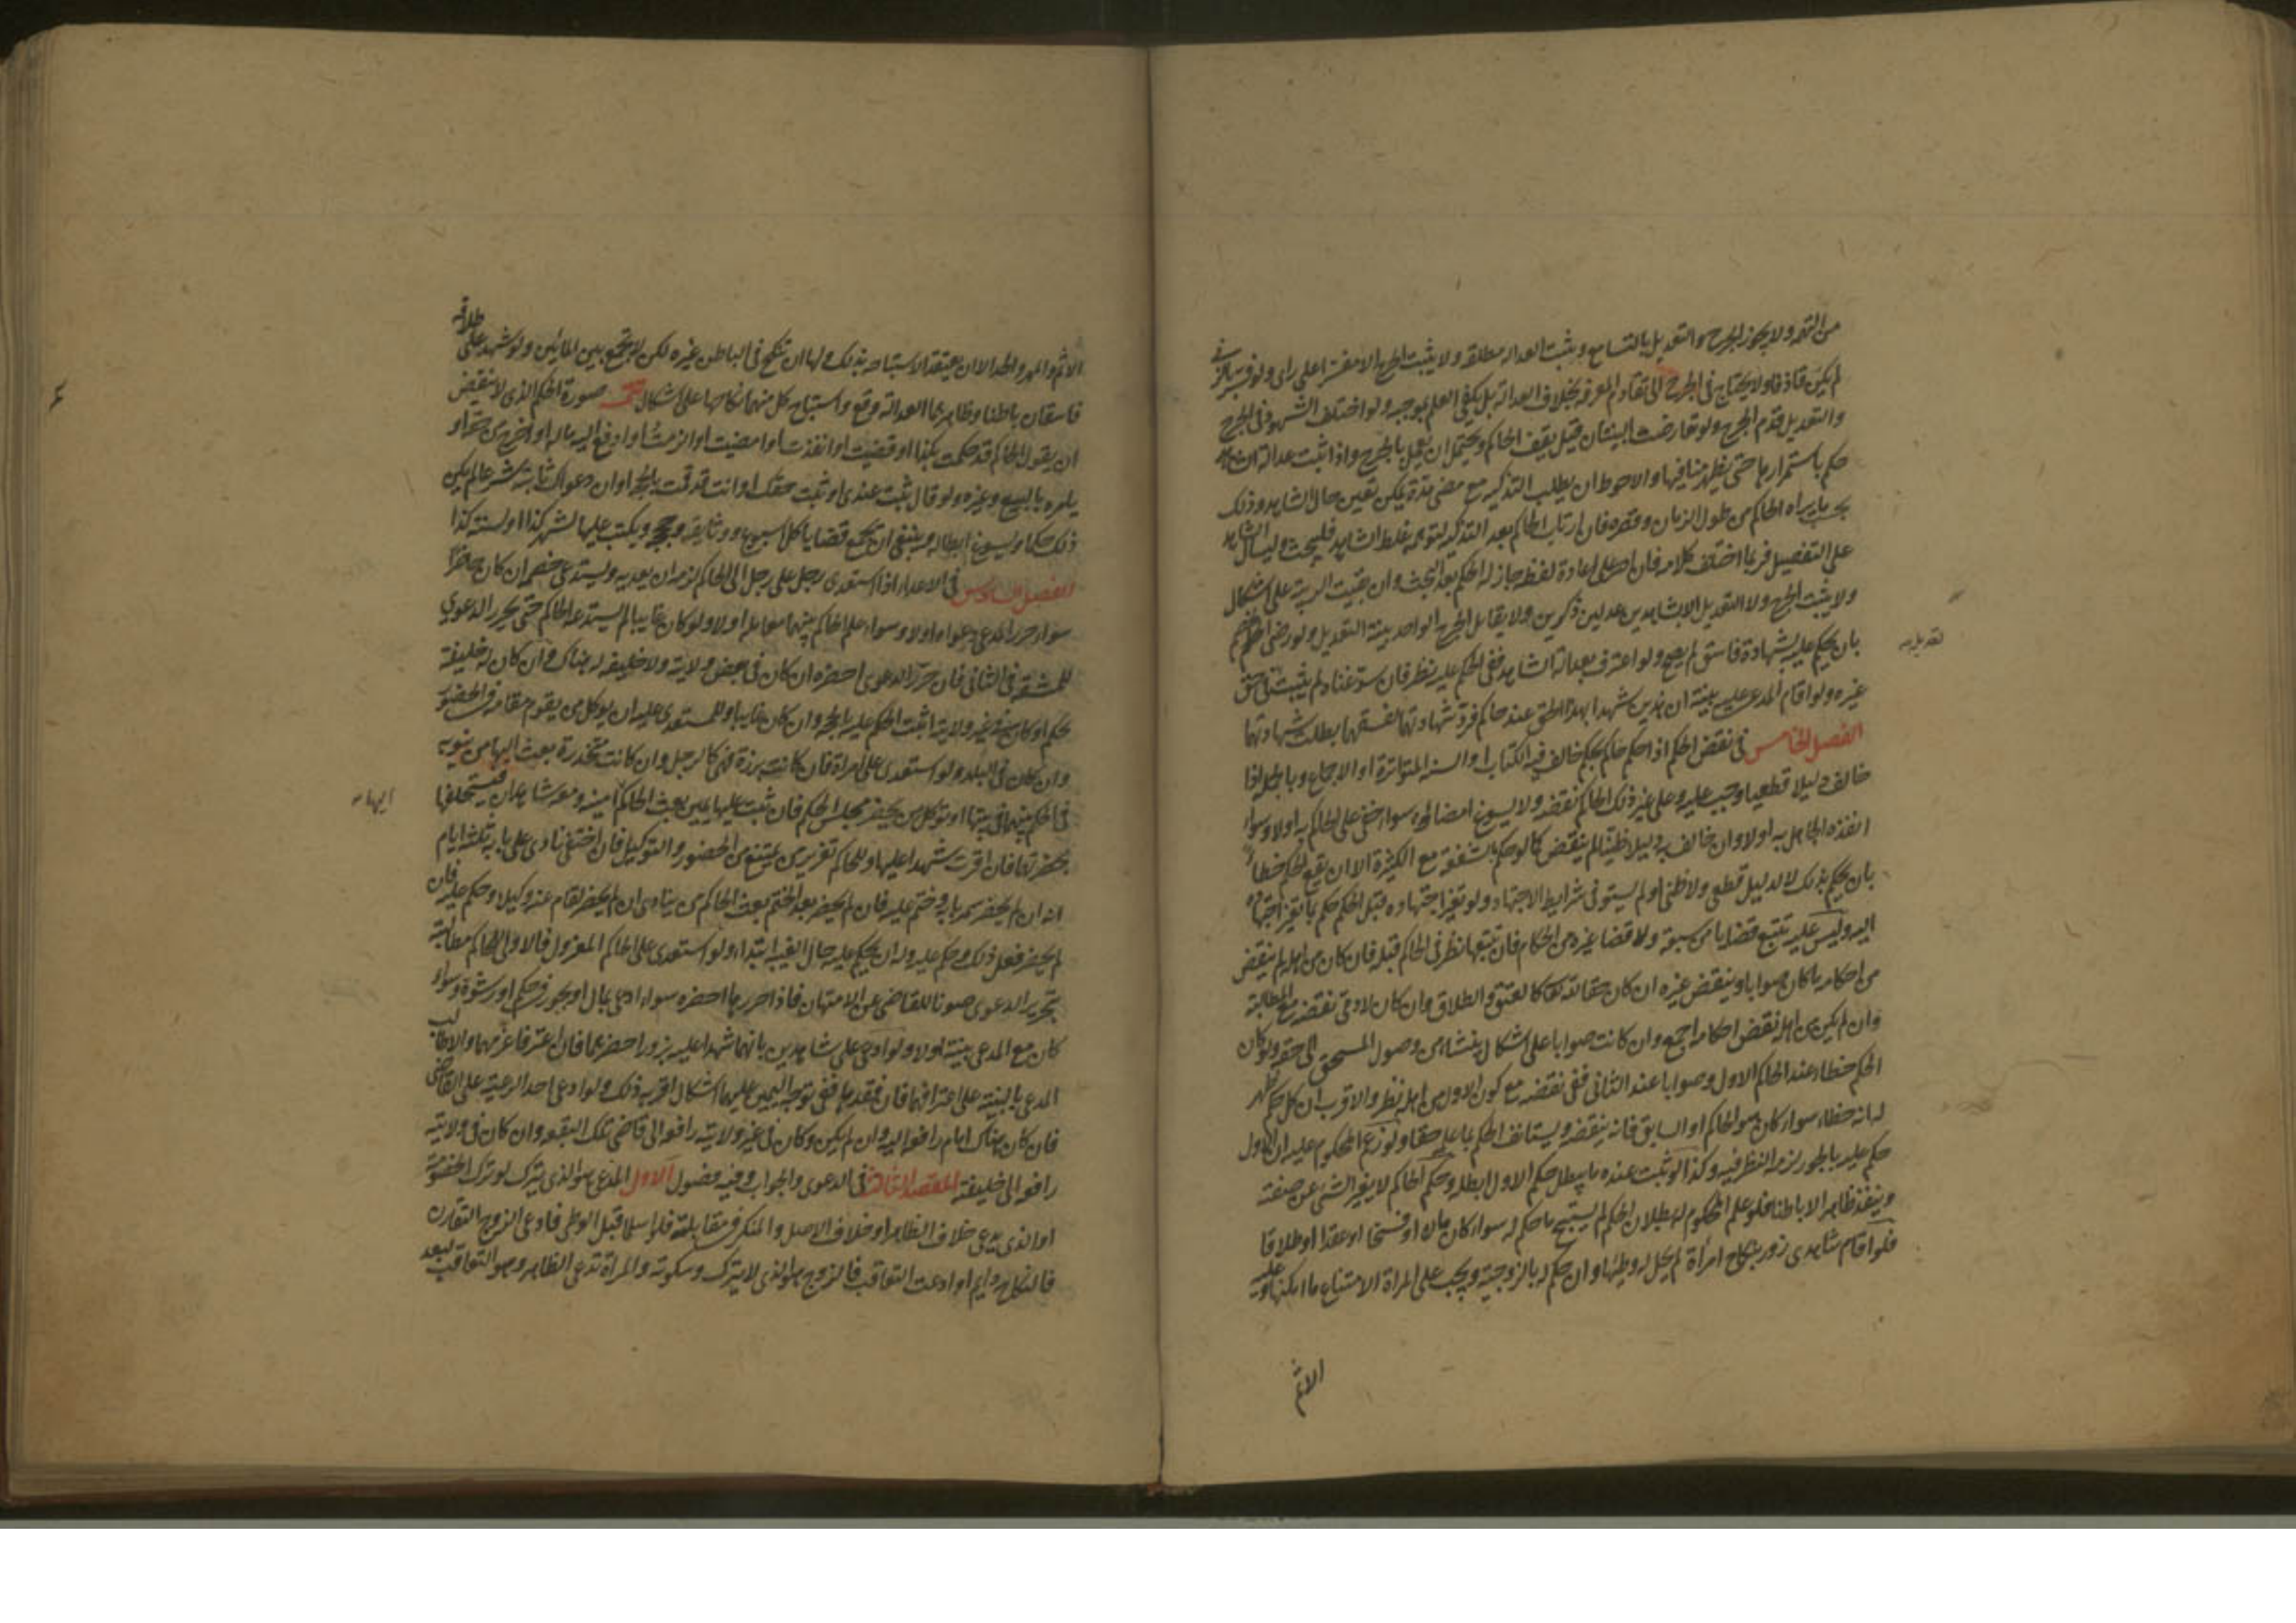 من التهم ولا يجوز الجرح والتعديل بالتسامع ويثبت العدالة مطلقة ولا يثبت الجرح الا مفسرا على رأي ولو فسر بالزنى
لم يكن قاذفا ولا يحتاج في الجرح الى تقادم المعرفة بخلاف العدالة بل يكفي العلم بموجبه ولو اختلف الشهود في الجرح
والتعديل قدم الجرح ولو تعارضت البينتان قيل يقف الحاكم ويحتمل ان يعمل بالجرح واذا ثبت عدالة الشاهد
حكم باستمرارها حتى يظهر منافيها والاحوط ان يطلب التزكية مع مضي مدة يمكن تغير حال الشاهد وذلك
بحسب ما يراه الحاكم من طول الزمان وقصره فان ارتاب الحاكم بعد التزكية لتوهمه غلط الشاهد فليبحث وليسأل الشاهد
على التفصيل فربما اختلف كلامه فان اصر على اعادة لفظه جاز له الحكم بعد البحث وان بقيت الريبة على اشكال
ولا يثبت الجرح ولا التعديل الا بشاهدين عدلين ذكرين ولا يقابل الجرح الواحد ببينة التعديل ولو رضي الخصم
بان يحكم عليه بشهادة فاسق لم يصح ولو اعترف بعدالة الشاهد ففي الحكم عليه نظر فان سوغناه لم يثبت في حق
تعديله
غيره ولو اقام المدعى عليه بينة ان هذين شهدا بهذا الحق عند حاكم فرد شهادتهما لفسقهما بطلت شهادتهما
الفصل الخامس في نقض الحكم اذا حكم حاكم بحكم خالف فيه الكتاب او السنة المتواترة او الاجماع وبالجملة اذا
خالف دليلا قطعيا وجب عليه وعلى غير ذلك الحاكم نقضه ولا يسوغ امضاؤه سواء خفي على الحاكم به اولا وسواء
انفذه الجاهل به اولا وان خالف به دليلا ظنيا لم ينقض كما لو حكم بالشفعة مع الكثرة الا ان يقع الحكم خطأ
بان يحكم بذلك لا لدليل قطعي ولا ظني او لم يستوف شرايط الاجتهاد ولو تغير اجتهاده قبل الحكم حكم بما تغير اجتهاده
اليه وليس عليه تتبع قضايا من سبقه ولا قضايا غيره من الحكام فان تتبعها نظر في الحاكم قبله فان كان من اهله لم ينقض
من احكامه ما كان صوابا وينقض غيره ان كان حقا لله تعالى كالعتق والطلاق وان كان لادمي نقضه مع المطالبة
وان لم يكن من اهله نقض احكامه اجمع وان كانت صوابا على اشكال ينشأ من وصول المستحق الى حقه ولو كان
الحكم خطاء عند الحاكم الاول وصوابا عند الثاني ففي نقضه مع كون الاول من اهله نظر والاقرب ان كل حكم ظهر
له انه خطاء سواء كان هو الحاكم او السابق فانه ينقضه ويستانف الحكم بما علمه حقا ولو زعم المحكوم عليه ان الاول
حكم عليه بالجور لزمه النظر فيه وكذا لو ثبت عنده ما يبطل حكم الاول ابطله وحكم الحاكم لا يغير الشئ عن صفته
وينفذ ظاهرا لا باطنا فلو علم المحكوم له بطلان الحكم لم يستبح ما حكم له سواء كان مالا او فسخا او عقدا او طلاقا
فلو اقام شاهدي زور بنكاح امرأة لم يحل له وطئها وان حكم له بالزوجية ويجب على المرأة الامتناع ما امكنها وعليه
الاثم
الاثم والمهر والحد الا ان يعتقد الاستباحة بذلك ولها ان تنكح في الباطن غيره لكن لا يجمع بين المائين ولو شهد على طلاقه
فاسقان باطنا وظاهرهما العدالة وقع واستباح كل منهما نكاحها على اشكال تتمة صورة الحكم الذي لا ينقض
ان يقول الحاكم قد حكمت بكذا او قضيت او انفذت او امضيت او الزمت او ادفع اليه ماله او اخرج من حقه او
يامره بالبيع وغيره ولو قال ثبت عندي او ثبت حقك او انت قد قمت بالحجة او ان دعواك ثابتة شرعا لم يكن
ذلك حكما ويسوغ ابطاله وينبغي ان يجمع قضايا كل اسبوع ووثايقه وحججه ويكتب عليها لشهر كذا او لسنة كذا
الفصل السادس في الاعداء اذا استعدى رجل على رجل الى الحاكم لزمه ان يعديه ويستدعي خصمه ان كان حاضرا
سواء حرر المدعي دعواه اولا وسواء علم الحاكم بينهما معاملة اولا ولو كان غايبا لم يستدعه الحاكم حتى يحرر الدعوى
للمشقة في الثاني فان حرر الدعوى احضره ان كان في بعض ولايته ولا خليفة له هناك وان كان له خليفة
يحكم او كان في غير ولايته اثبت الحكم عليه بالحجة وان كان غايبا وللمستعدى عليه ان يوكل من يقوم مقامه في الحضور
وان كان في البلد ولو استعدى على امراة فان كانت برزة فهي كالرجل وان كانت مخدرة بعث اليها من ينوبه
في الحكم بينهما في بيتها او توكل من يحضر مجلس الحكم فان ثبت عليها يمين بعث الحاكم امينه ومعه شاهدان فيستحلفها
ايهاه
بحضرتهما فان اقرت شهدا عليها وللحاكم تعزير من يمتنع من الحضور والتوكيل فان اختفى نادى على بابه ثلثة ايام
انه ان لم يحضر سمر بابه وختم عليه فان لم يحضر بعد الختم بعث الحاكم من ينادي ان لم يحضر اقام عنه وكيلا وحكم عليه فان
لم يحضر فعل ذلك وحكم عليه وله ان يحكم عليه حال الغيبة ابتداء ولو استعدى على الحاكم المعزول فالاولى للحاكم مطالبته
بتحرير الدعوى صونا للقاضي عن الامتهان فاذا حررها احضره سواء ادعى بمال او بجور في حكم او رشوة وسواء
كان مع المدعي بينة اولا ولو ادعى على شاهدين بانهما شهدا عليه بزور احضرهما فان اعترفا غرمهما والا طالب
المدعي بالبينة على اعترافهما فان فقدها ففي توجه اليمين عليهما اشكال اقربه ذلك ولو ادعى احد الرعية على القاضي
فان كان هناك امام رافعه اليه وان لم يكن وكان في غير ولايته رافعه الى قاضي تلك البقعة وان كان في ولايته
رافعه الى خليفته المقصد الثالث في الدعوى والجواب وفيه فصول الاول المدعي هو الذي يترك لو ترك الخصومة
او الذي يدعي خلاف الظاهر او خلاف الاصل والمنكر في مقابلته فلو اسلما قبل الوطي فادعى الزوج التقارن
فالنكاح دايم او ادعت التعاقب فالزوج هو الذي لا يترك وسكوته والمراة تدعي الظاهر وهو التعاقب لبعد